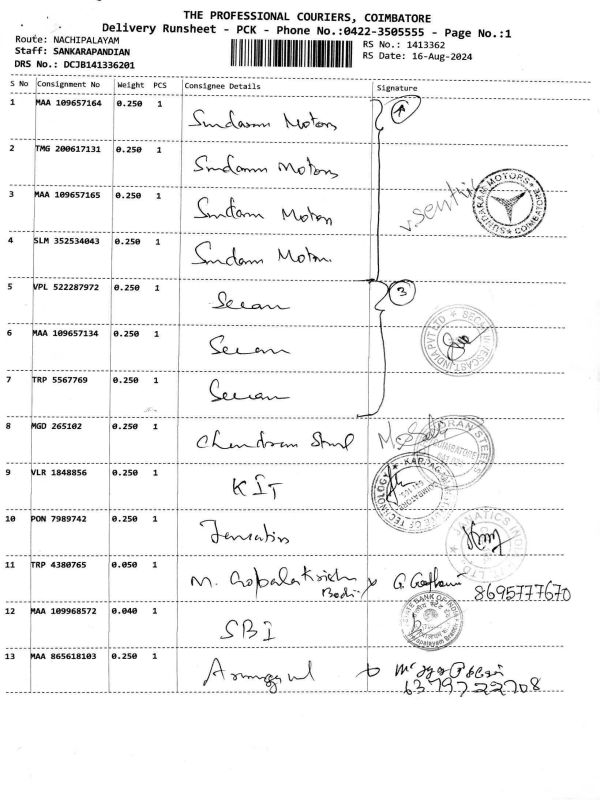 THE PROFESSIONAL COURIERS, COIMBATORE
Delivery Runsheet - PCK - Phone No.:0422-3505555 - Page No.:1
Route: NACHIPALAYAM
RS No.: 1413362
Staff: SANKARAPANDIAN
RS Date: 16-Aug-2024
DRS No.: DCJB141336201
S No Consignment No Weight PCS Consignee Details Signature
1 MAA 109657164 0.250 1 Sundaram Motors
2 TMG 200617131 0.250 1 Sundaram Motors
3 MAA 109657165 0.250 1 Sundaram Motors
V. Senthil
SUNDARAM MOTORS COIMBATORE
4 SLM 352534043 0.250 1 Sundaram Motors
5 VPL 522287972 0.250 1 3
6 MAA 109657134 0.250 1
7 TRP 5567769 0.250 1
8 MGD 265102 0.250 1 Chandran Steel
9 VLR 1848856 0.250 1 KIT
10 PON 7989742 0.250 1
JANATICS INDIA
11 TRP 4380765 0.050 1 M. Gopalakrishn
8695777670
12 MAA 109968572 0.040 1 SBI
STATE BANK OF INDIA
13 MAA 865618103 0.250 1
6379722708